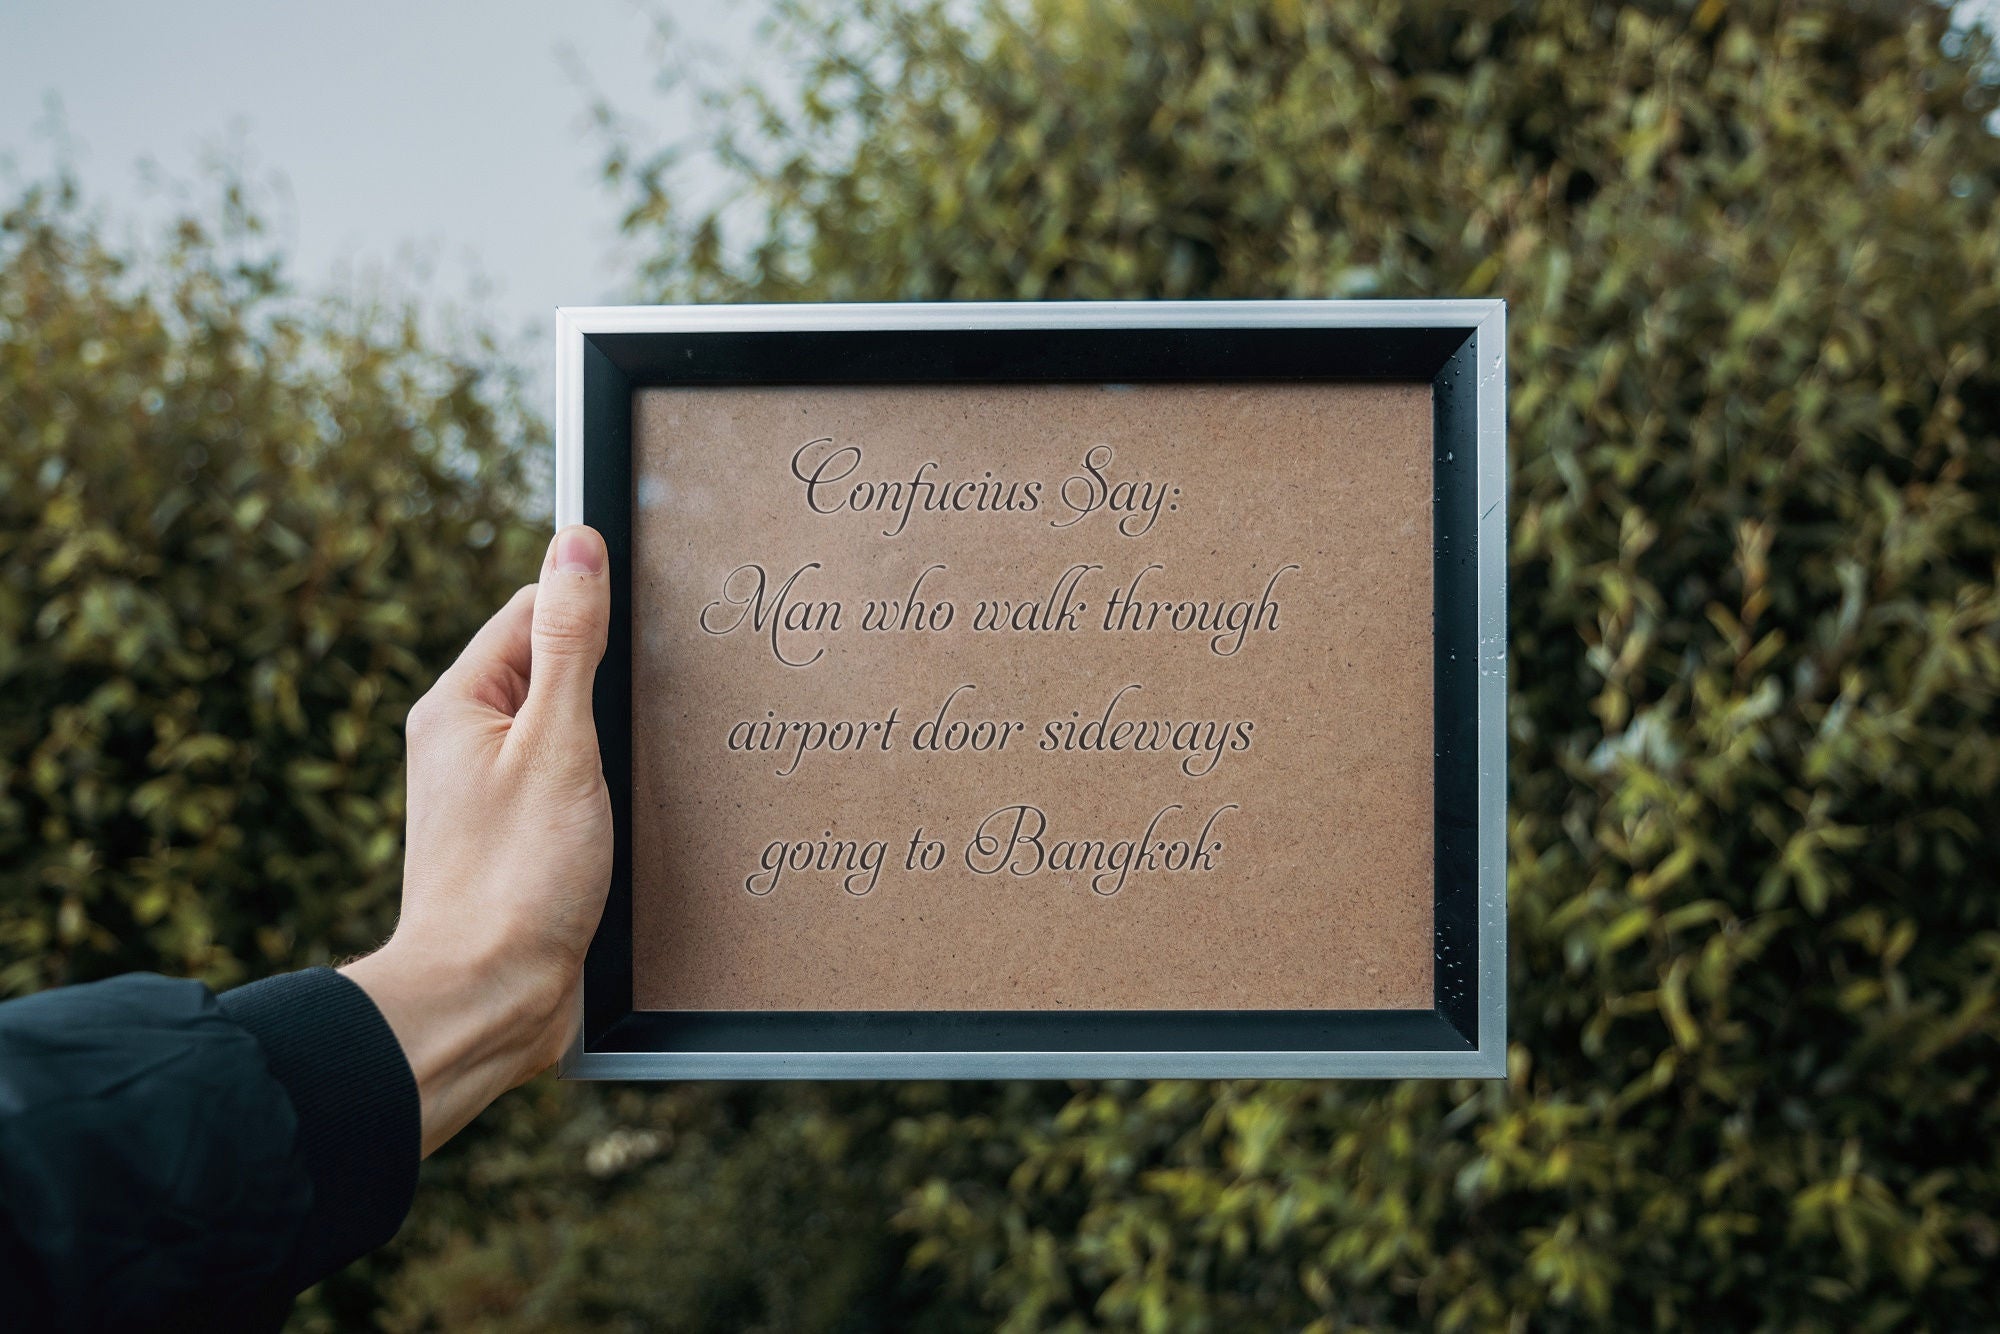 Confucius Say:
Man who walk through
airport door sideways
going to Bangkok